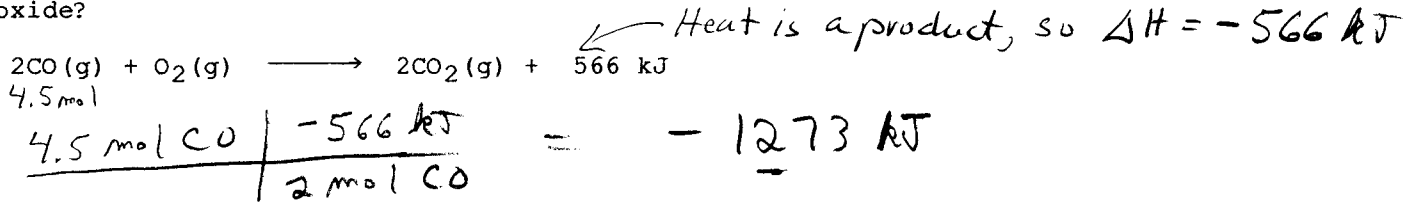 oxide?
Heat is a product, so ΔH = -566 kJ
2CO(g) + O2(g) ⟶ 2CO2(g) + 566 kJ
4.5 mol
4.5 mol CO | -566 kJ = - 1273 kJ
2 mol CO